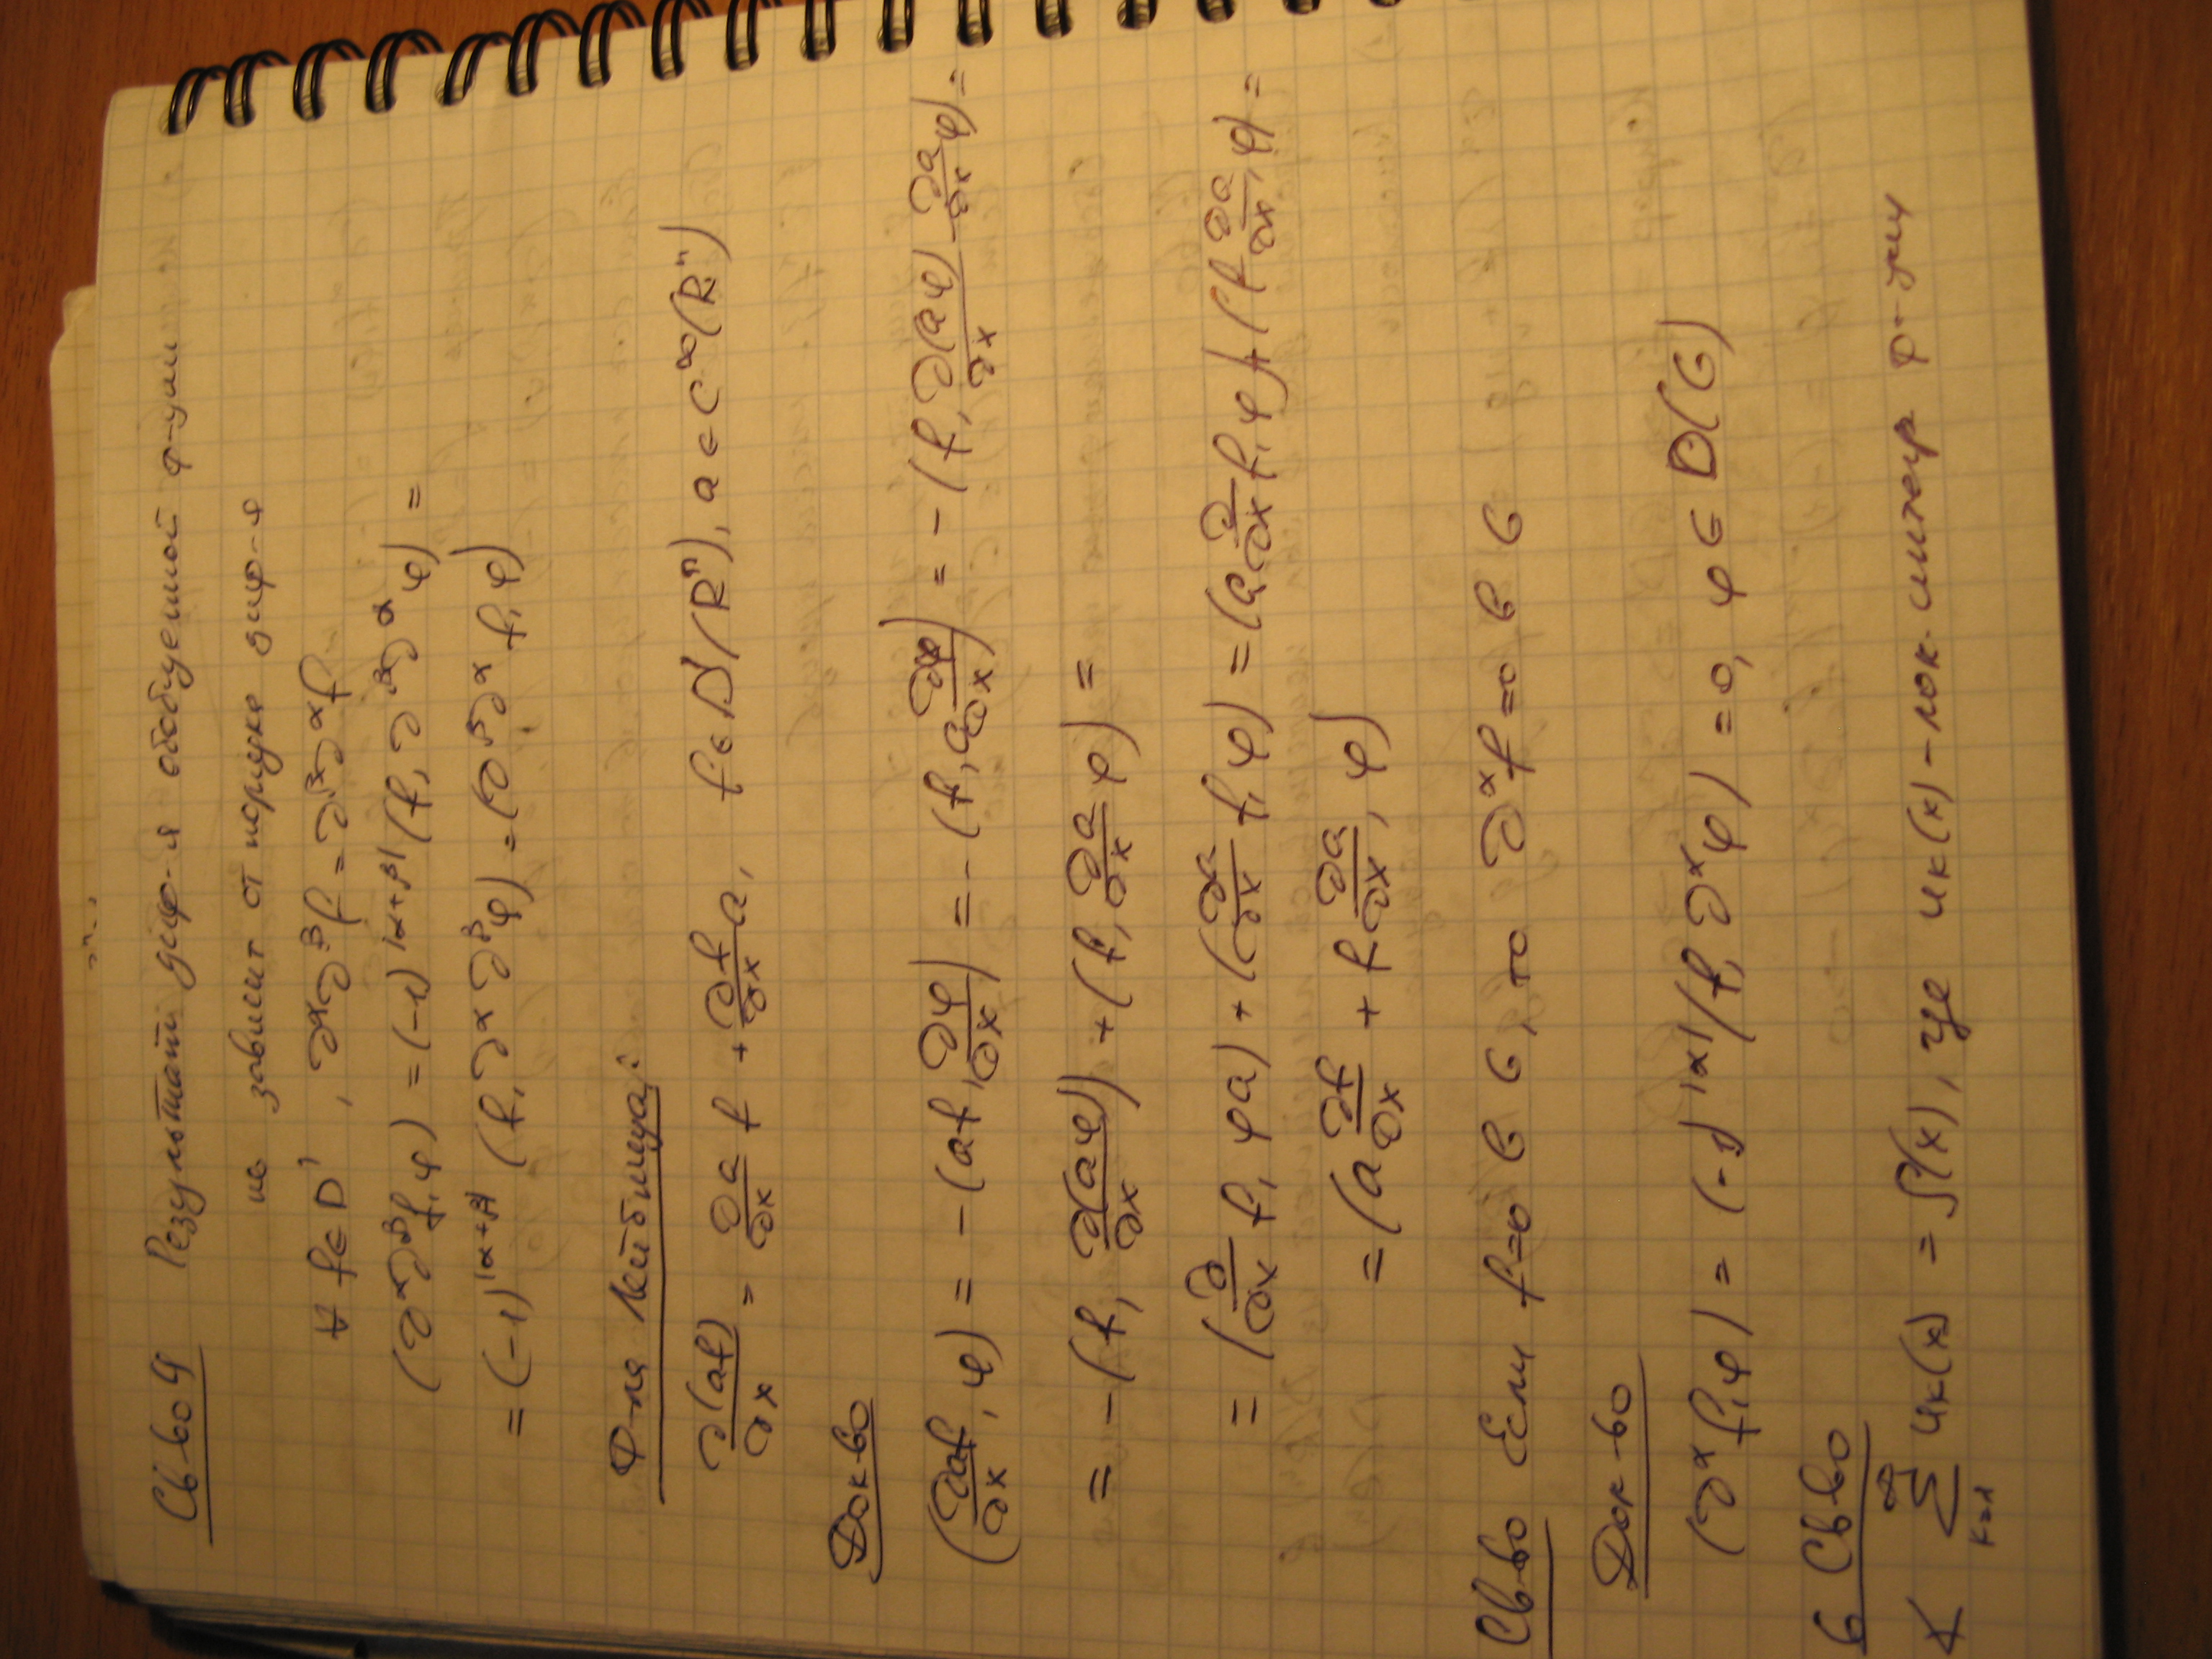 Св-во 4 Результат диф-я обобщенной ф-ции
не зависит от порядка диф-я
∀ f ∈ D', ∂^α ∂^β f = ∂^β ∂^α f
(∂^α ∂^β f, φ) = (-1)^|α+β| (f, ∂^β ∂^α φ) =
= (-1)^|α+β| (f, ∂^α ∂^β φ) = (∂^β ∂^α f, φ)
Ф-ла Лейбница:
∂(af)/∂x = ∂a/∂x f + ∂f/∂x a, f ∈ D'(R^n), a ∈ C^∞(R^n)
Док-во
(∂af/∂x, φ) = -(af, ∂φ/∂x) = -(f, a ∂φ/∂x) = -(f, ∂(aφ)/∂x - ∂a/∂x φ) =
= -(f, ∂(aφ)/∂x) + (f, ∂a/∂x φ) =
= (∂/∂x f, φa) + (∂a/∂x f, φ) = (a ∂/∂x f, φ) + (f ∂a/∂x, φ) =
= (a ∂f/∂x + f ∂a/∂x, φ)
Св-во Если f=0 в G, то ∂^α f = 0 в G
Док-во
(∂^α f, φ) = (-1)^|α| (f, ∂^α φ) = 0, φ ∈ D(G)
6 Св-во
∑_{k=1}^∞ u_k(x) = S(x), где u_k(x) - лок. интегр ф-ции